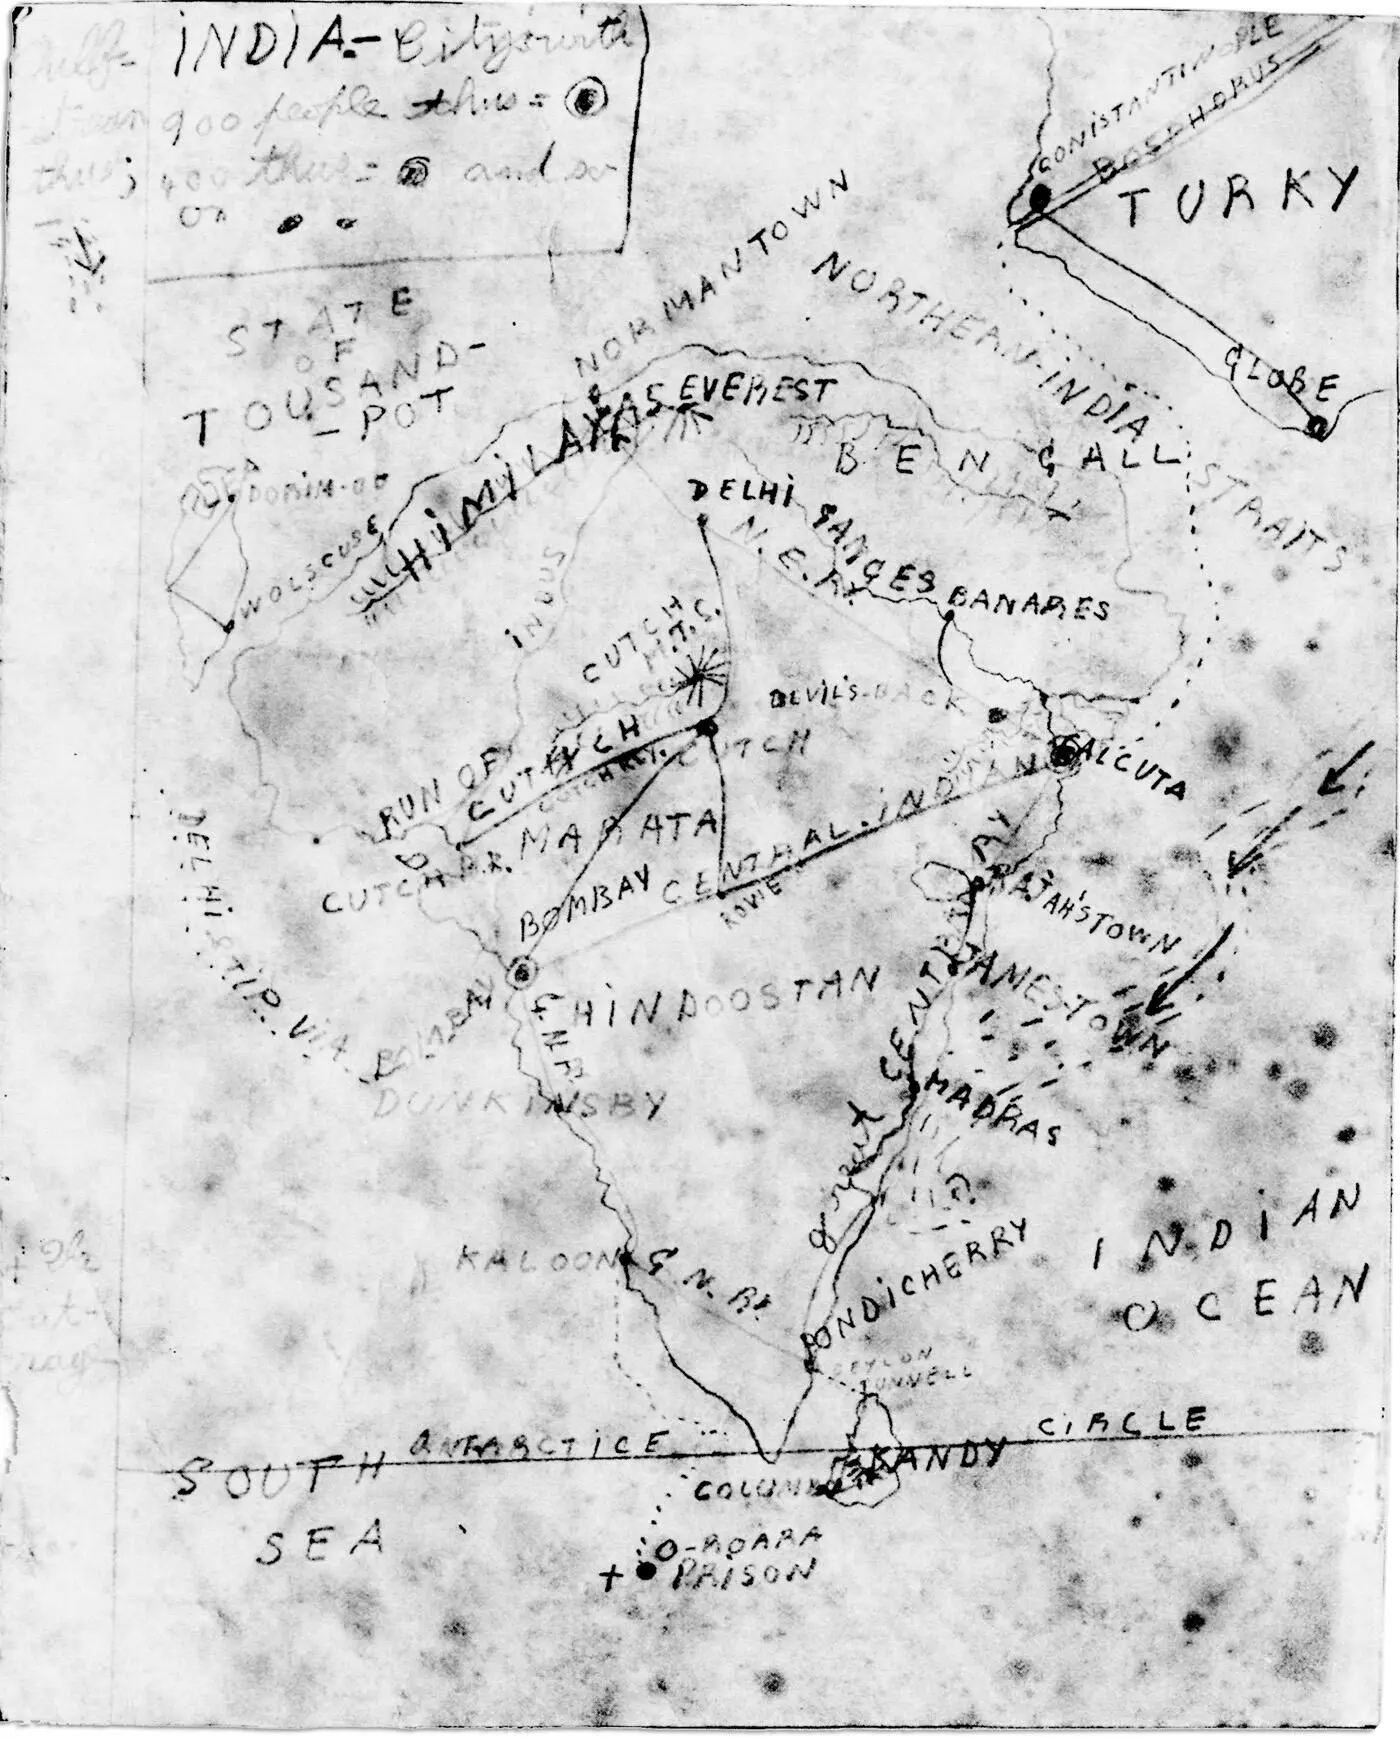 INDIA.- Citys with
900 people thus =
thus; 400 thus = and so
on
CONISTANTINOPLE
BOSPHORUS
TURKY
GLOBE
NORMANTOWN
NORTHEAN-INDIAL STRAITS
STATE
OF
TOUSAND-
-POT
HIMILAYAS
EVEREST
BENGALL
WOLSCUSE
DELHI
GANGES
N.E.RY.
BANARES
INDUS
CUTCH
H.T.S.
DEVIL'S-BACK
CALCUTA
RUN OF
CUTCH
CUTCH RLY.
CUTCH
CUTCH R.R.
MARATA
BOMBAY CENTRAL.INDIAN
ROWE
RAJAH'STOWN
JAMESTOWN
HINDOOSTAN
DELHI & TIP. VIA.
BOMBAY
G.N.R.
DUNKINSBY
great CENTRAL
MADRAS
INDIAN
OCEAN
KALOON
G.N.RY.
PONDICHERRY
CEYLON
TUNNELL
ANTARCTICE CIRCLE
SOUTH
SEA
KANDY
COLUMBO
O-ROARA
+ PRISON